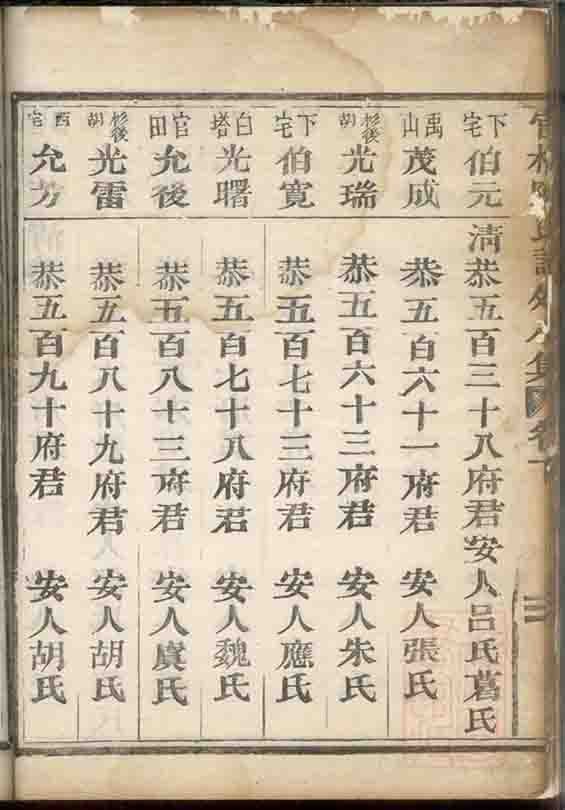 下宅 伯元 清恭五百三十八府君 安人呂氏葛氏
禹山 茂成 恭五百六十一府君 安人張氏
杉後胡 光瑞 恭五百六十三府君 安人朱氏
下宅 伯寬 恭五百七十三府君 安人應氏
白塔 光曙 恭五百七十八府君 安人魏氏
官田 允後 恭五百八十三府君 安人虞氏
杉後胡 光雷 恭五百八十九府君 安人胡氏
西宅 允方 恭五百九十府君 安人胡氏